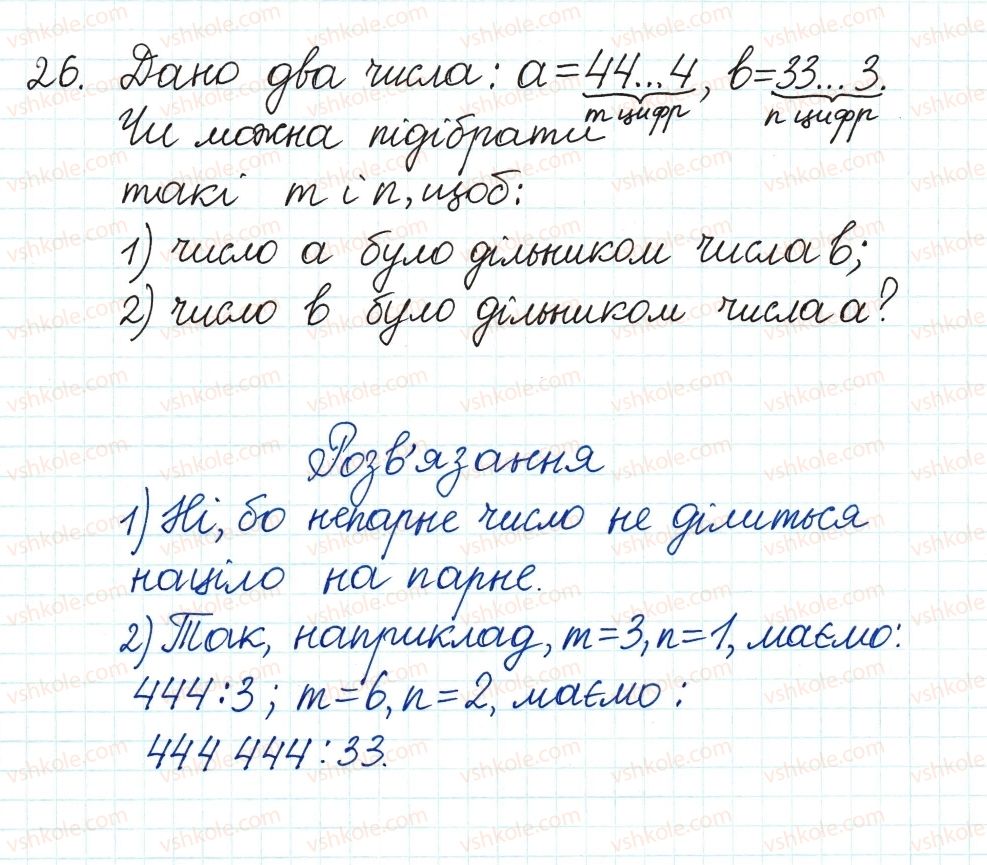 26. Дано два числа: a=44...4, b=33...3.
m цифр n цифр
Чи можна підібрати
такі m і n, щоб:
1) число a було дільником числа b;
2) число b було дільником числа a?
Розв'язання
1) Ні, бо непарне число не ділиться
націло на парне.
2) Так, наприклад, m=3, n=1, маємо:
444:3; m=6, n=2, маємо:
444 444:33.
vshkole.com